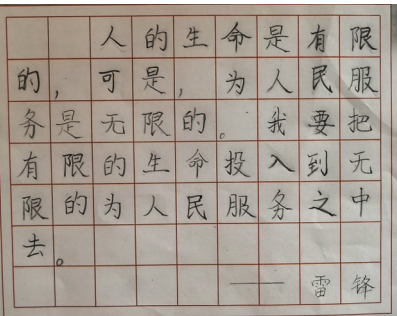 人的生命是有限
的，可是，为人民服
务是无限的。我要把
有限的生命投入到无
限的为人民服务之中
去。
——雷锋